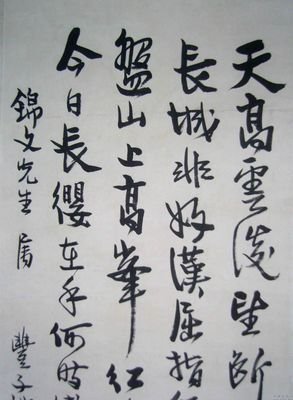 天高雲淡望斷
長城非好漢屈指行
盤山上高峯紅
今日長纓在手何時縛
錦文先生 屬 豐子